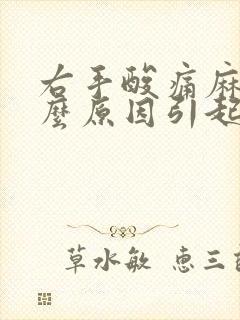 右手酸痛麻
麼原因引起
草水敏 惠三